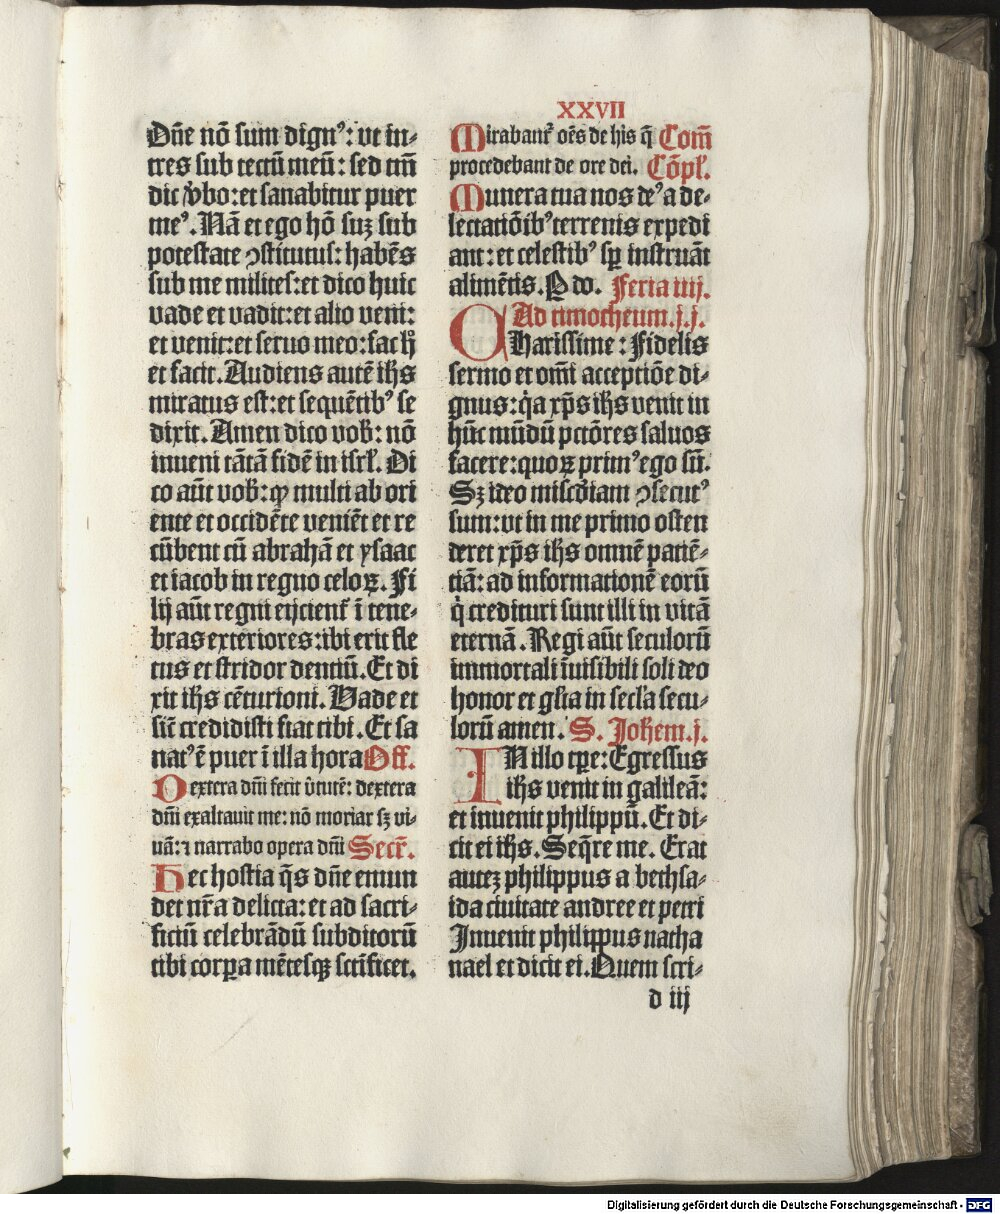 XXVII
Dñe nõ sum dignꝰ: vt in-
tres sub tectũ meũ: sed tm̃
dic v̾bo: et sanabitur puer
meꝰ. Nã et ego hõ suꝫ sub
potestate ꝯstitutus: habẽs
sub me milites: et dico huic
vade et vadit: et alio veni:
et venit: et seruo meo: fac h̊
et facit. Audiens autẽ ih̃s
miratus est: et sequẽtibꝰ se
dixit. Amen dico vob̃: nõ
inueni tãtã fidẽ in isrl̃. Di
co aũt vob̃: ꝙ multi ab ori
ente et occidẽte veniẽt et re
cũbent cũ abrahã et ysaac
et iacob in regno celoꝝ. Fi
lij aũt regni eijcient᷑ ĩ tene-
bras exteriores: ibi erit fle
tus et stridor dentiũ. Et di
xit ih̃s cẽturioni. Vade et
sic̃ credidisti fiat tibi. Et sa
natꝰ ẽ puer ĩ illa hora Off.
Dextera dñi fecit v̾tutẽ: dextera
dñi exaltauit me: nõ moriar sꝫ vi-
uã: ⁊ narrabo opera dñi Secr̃.
Hec hostia q̃s dñe emun
det nr̃a delicta: et ad sacri-
ficiũ celebrãdũ subditorũ
tibi corꝑa mẽtesqꝫ sc̃tificet.
Mirabant᷑ oẽs de his q̃ Com̃
procedebant de ore dei. Cõpl̃.
Munera tua nos deꝰ a de-
lectatiõibꝰ terrenis expedi
ant: et celestibꝰ sꝑ instruãt
alimẽtis. P do. Feria iiij.
Ad timotheum. j. j.
Charissime: Fidelis
sermo et om̃i acceptiõe di-
gnus: q̇a xp̃s ih̃s venit in
hũc mũdũ pctõres saluos
facere: quoꝝ primꝰ ego sũ.
Sꝫ ideo mis̃cdiam ꝯsecutꝰ
sum: vt in me primo osten
deret xp̃s ih̃s omnẽ patiẽ-
tiã: ad informationẽ eorũ
q̇ credituri sunt illi in vitã
eternã. Regi aũt seculorũ
immortali ĩuisibili soli deo
honor et gl̃ia in secl̃a secu-
lorũ amen. S. Joh̃em. j.
IN illo tꝑe: Egressus
ih̃s venit in galileã:
et inuenit philippũ. Et di-
cit ei ih̃s. Seq̃re me. Erat
auteꝫ philippus a bethsa-
ida ciuitate andree et petri
Inuenit philippus natha
nael et dicit ei. Quem scri-
d iij
Digitalisierung gefördert durch die Deutsche Forschungsgemeinschaft - DFG